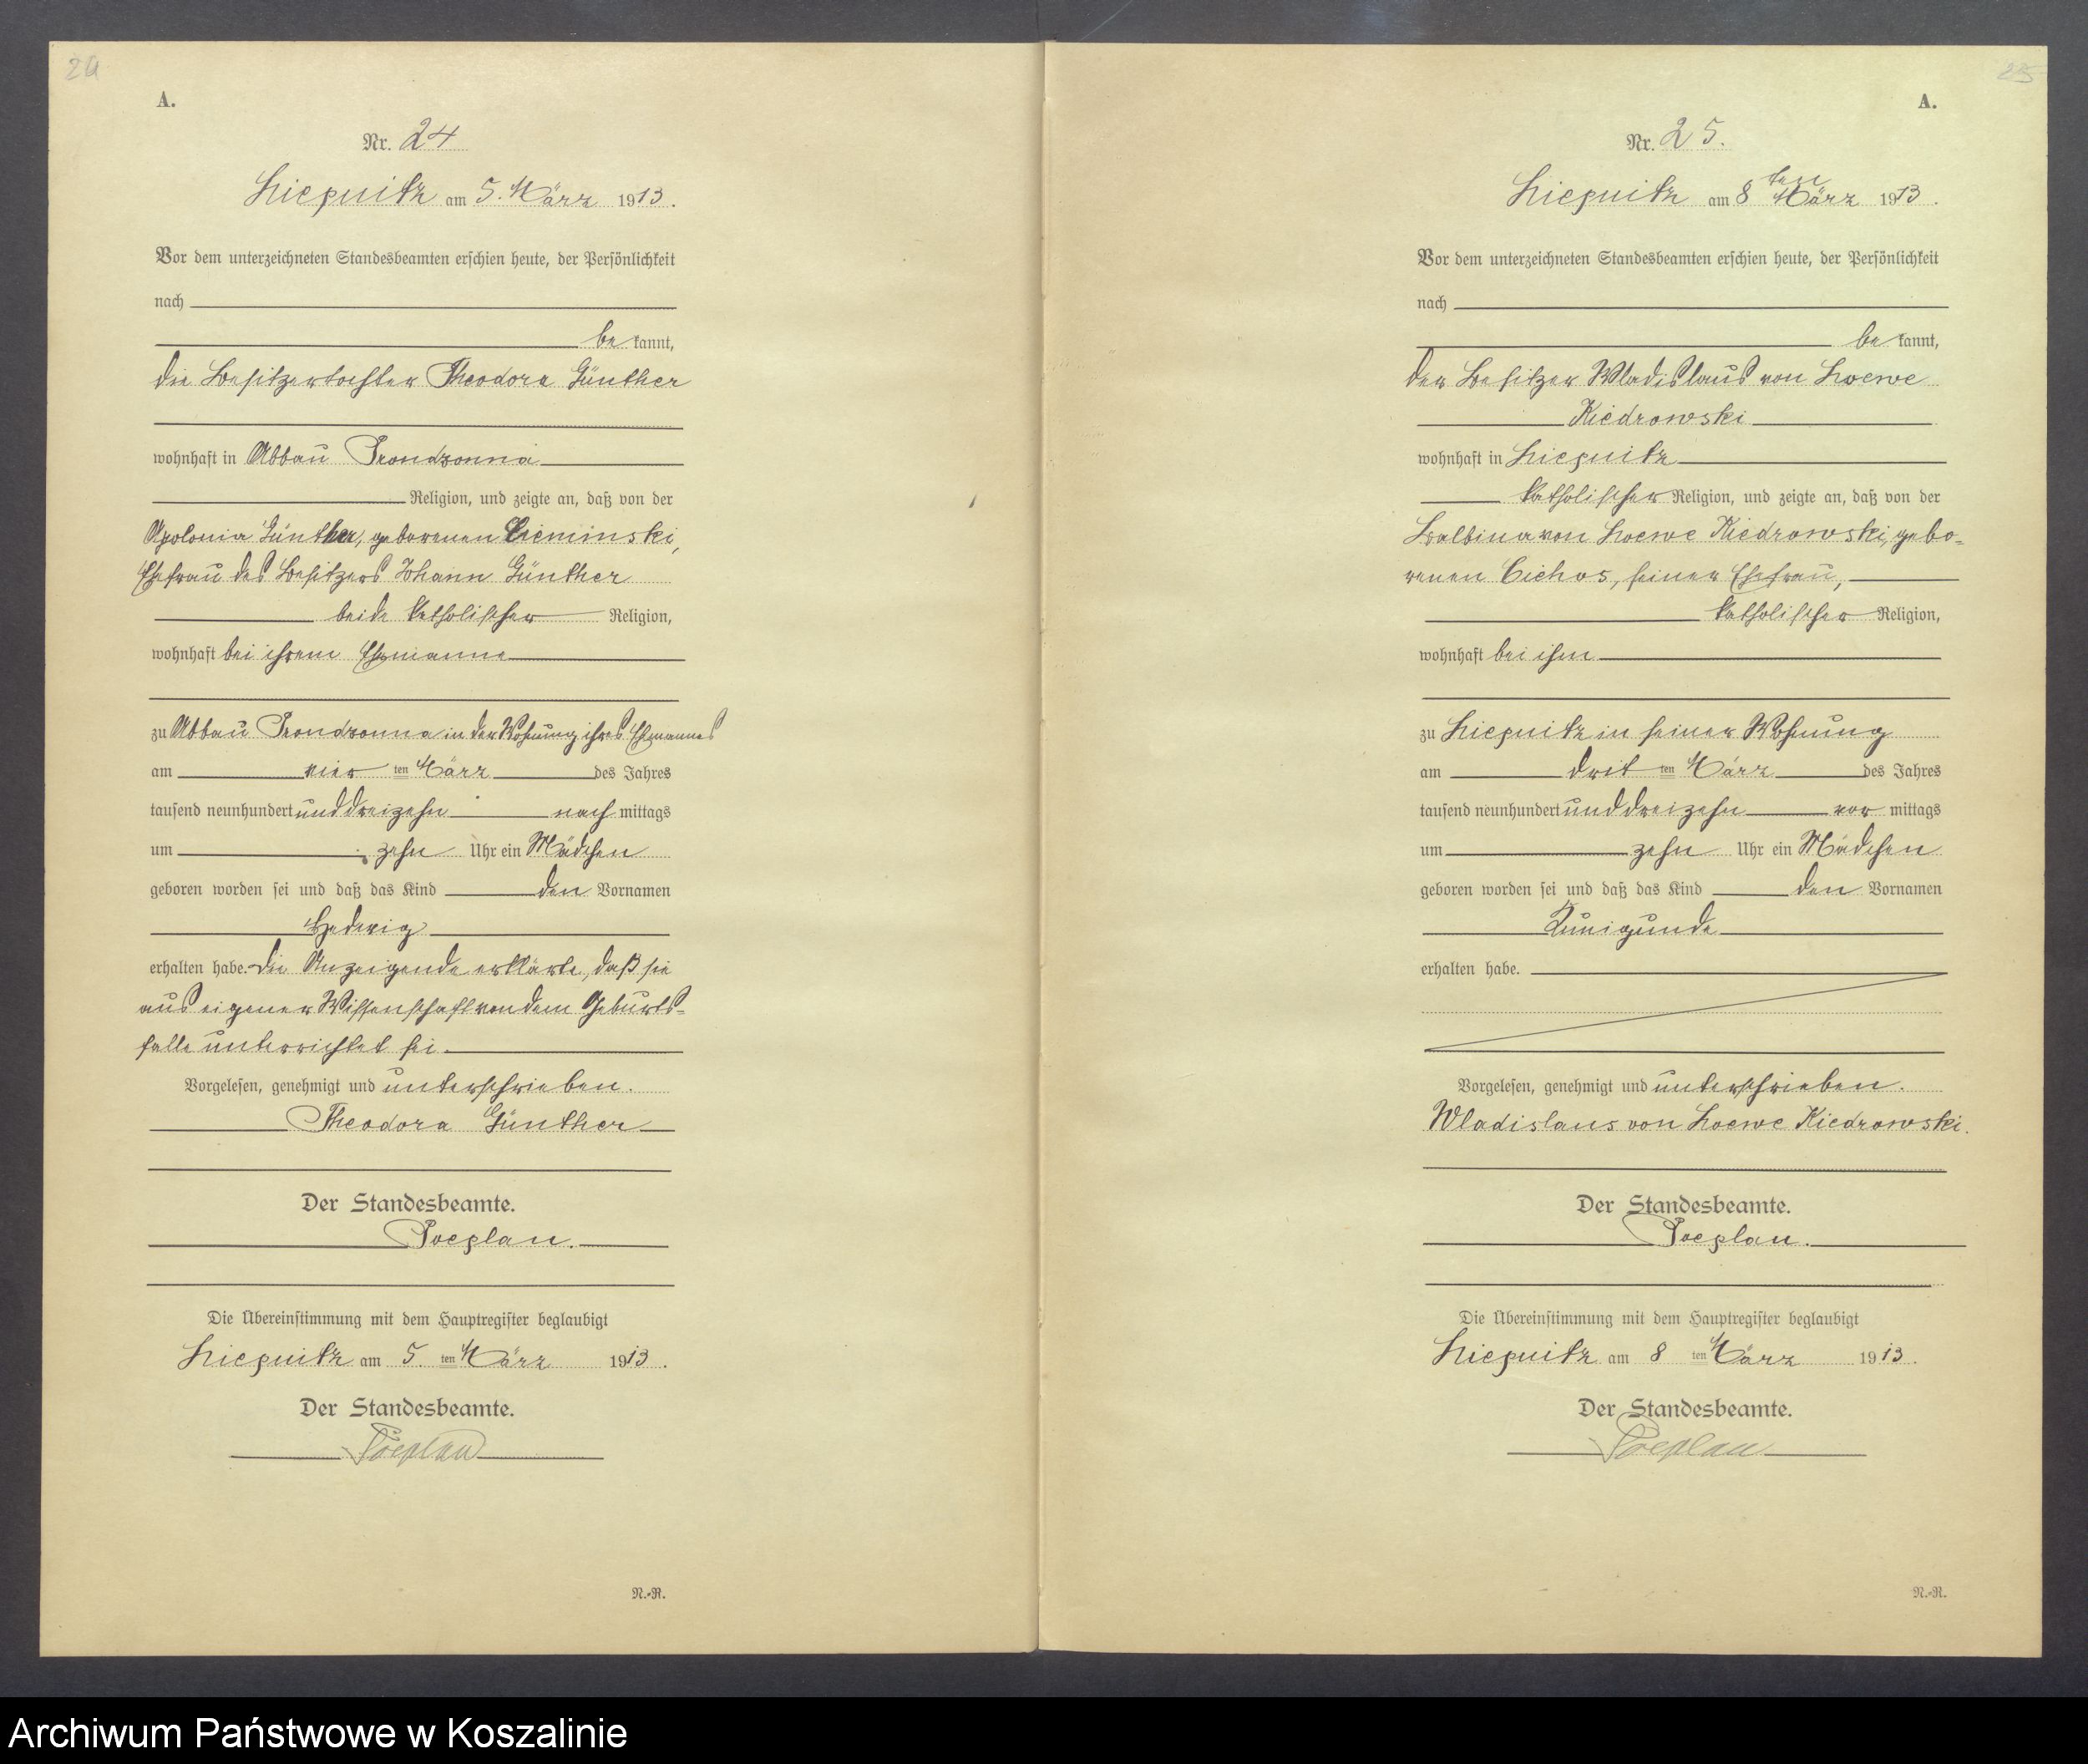 24
A.
Nr. 24
Liepnitz am 5. März 1913.
Vor dem unterzeichneten Standesbeamten erschien heute, der Persönlichkeit
nach
be kannt,
die Besitzertochter Theodora Günther
wohnhaft in Abbau Prondzonna
Religion, und zeigte an, daß von der
Apolonia Günther, geborenen Cieminski,
Ehefrau des Besitzers Johann Günther
beide katholischer Religion,
wohnhaft bei ihrem Ehemanne
zu Abbau Prondzonna in der Wohnung ihres Ehemannes
am vier ten März des Jahres
tausend neunhundert und dreizehn nach mittags
um zehn Uhr ein Mädchen
geboren worden sei und daß das Kind den Vornamen
Hedwig
erhalten habe. Die Anzeigende erklärte, daß sie
aus eigener Wissenschaft von dem Geburts-
falle unterrichtet sei.
Vorgelesen, genehmigt und unterschrieben.
Theodora Günther
Der Standesbeamte.
Poeplau.
Die Übereinstimmung mit dem Hauptregister beglaubigt
Liepnitz am 5 ten März 1913.
Der Standesbeamte.
Poeplau
N.-R.
25
A.
Nr. 25.
Liepnitz am 8ten März 1913.
Vor dem unterzeichneten Standesbeamten erschien heute, der Persönlichkeit
nach
be kannt,
der Besitzer Wladislaus von Loewe
Kiedrowski
wohnhaft in Liepnitz
katholischer Religion, und zeigte an, daß von der
Balbina von Loewe Kiedrowski, gebo-
renen Cichos, seiner Ehefrau,
katholischer Religion,
wohnhaft bei ihm
zu Liepnitz in seiner Wohnung
am drit ten März des Jahres
tausend neunhundert und dreizehn vor mittags
um zehn Uhr ein Mädchen
geboren worden sei und daß das Kind den Vornamen
Kunigunde
erhalten habe.
Vorgelesen, genehmigt und unterschrieben.
Wladislaus von Loewe Kiedrowski.
Der Standesbeamte.
Poeplau.
Die Übereinstimmung mit dem Hauptregister beglaubigt
Liepnitz am 8 ten März 1913.
Der Standesbeamte.
Poeplau
N.-R.
Archiwum Państwowe w Koszalinie